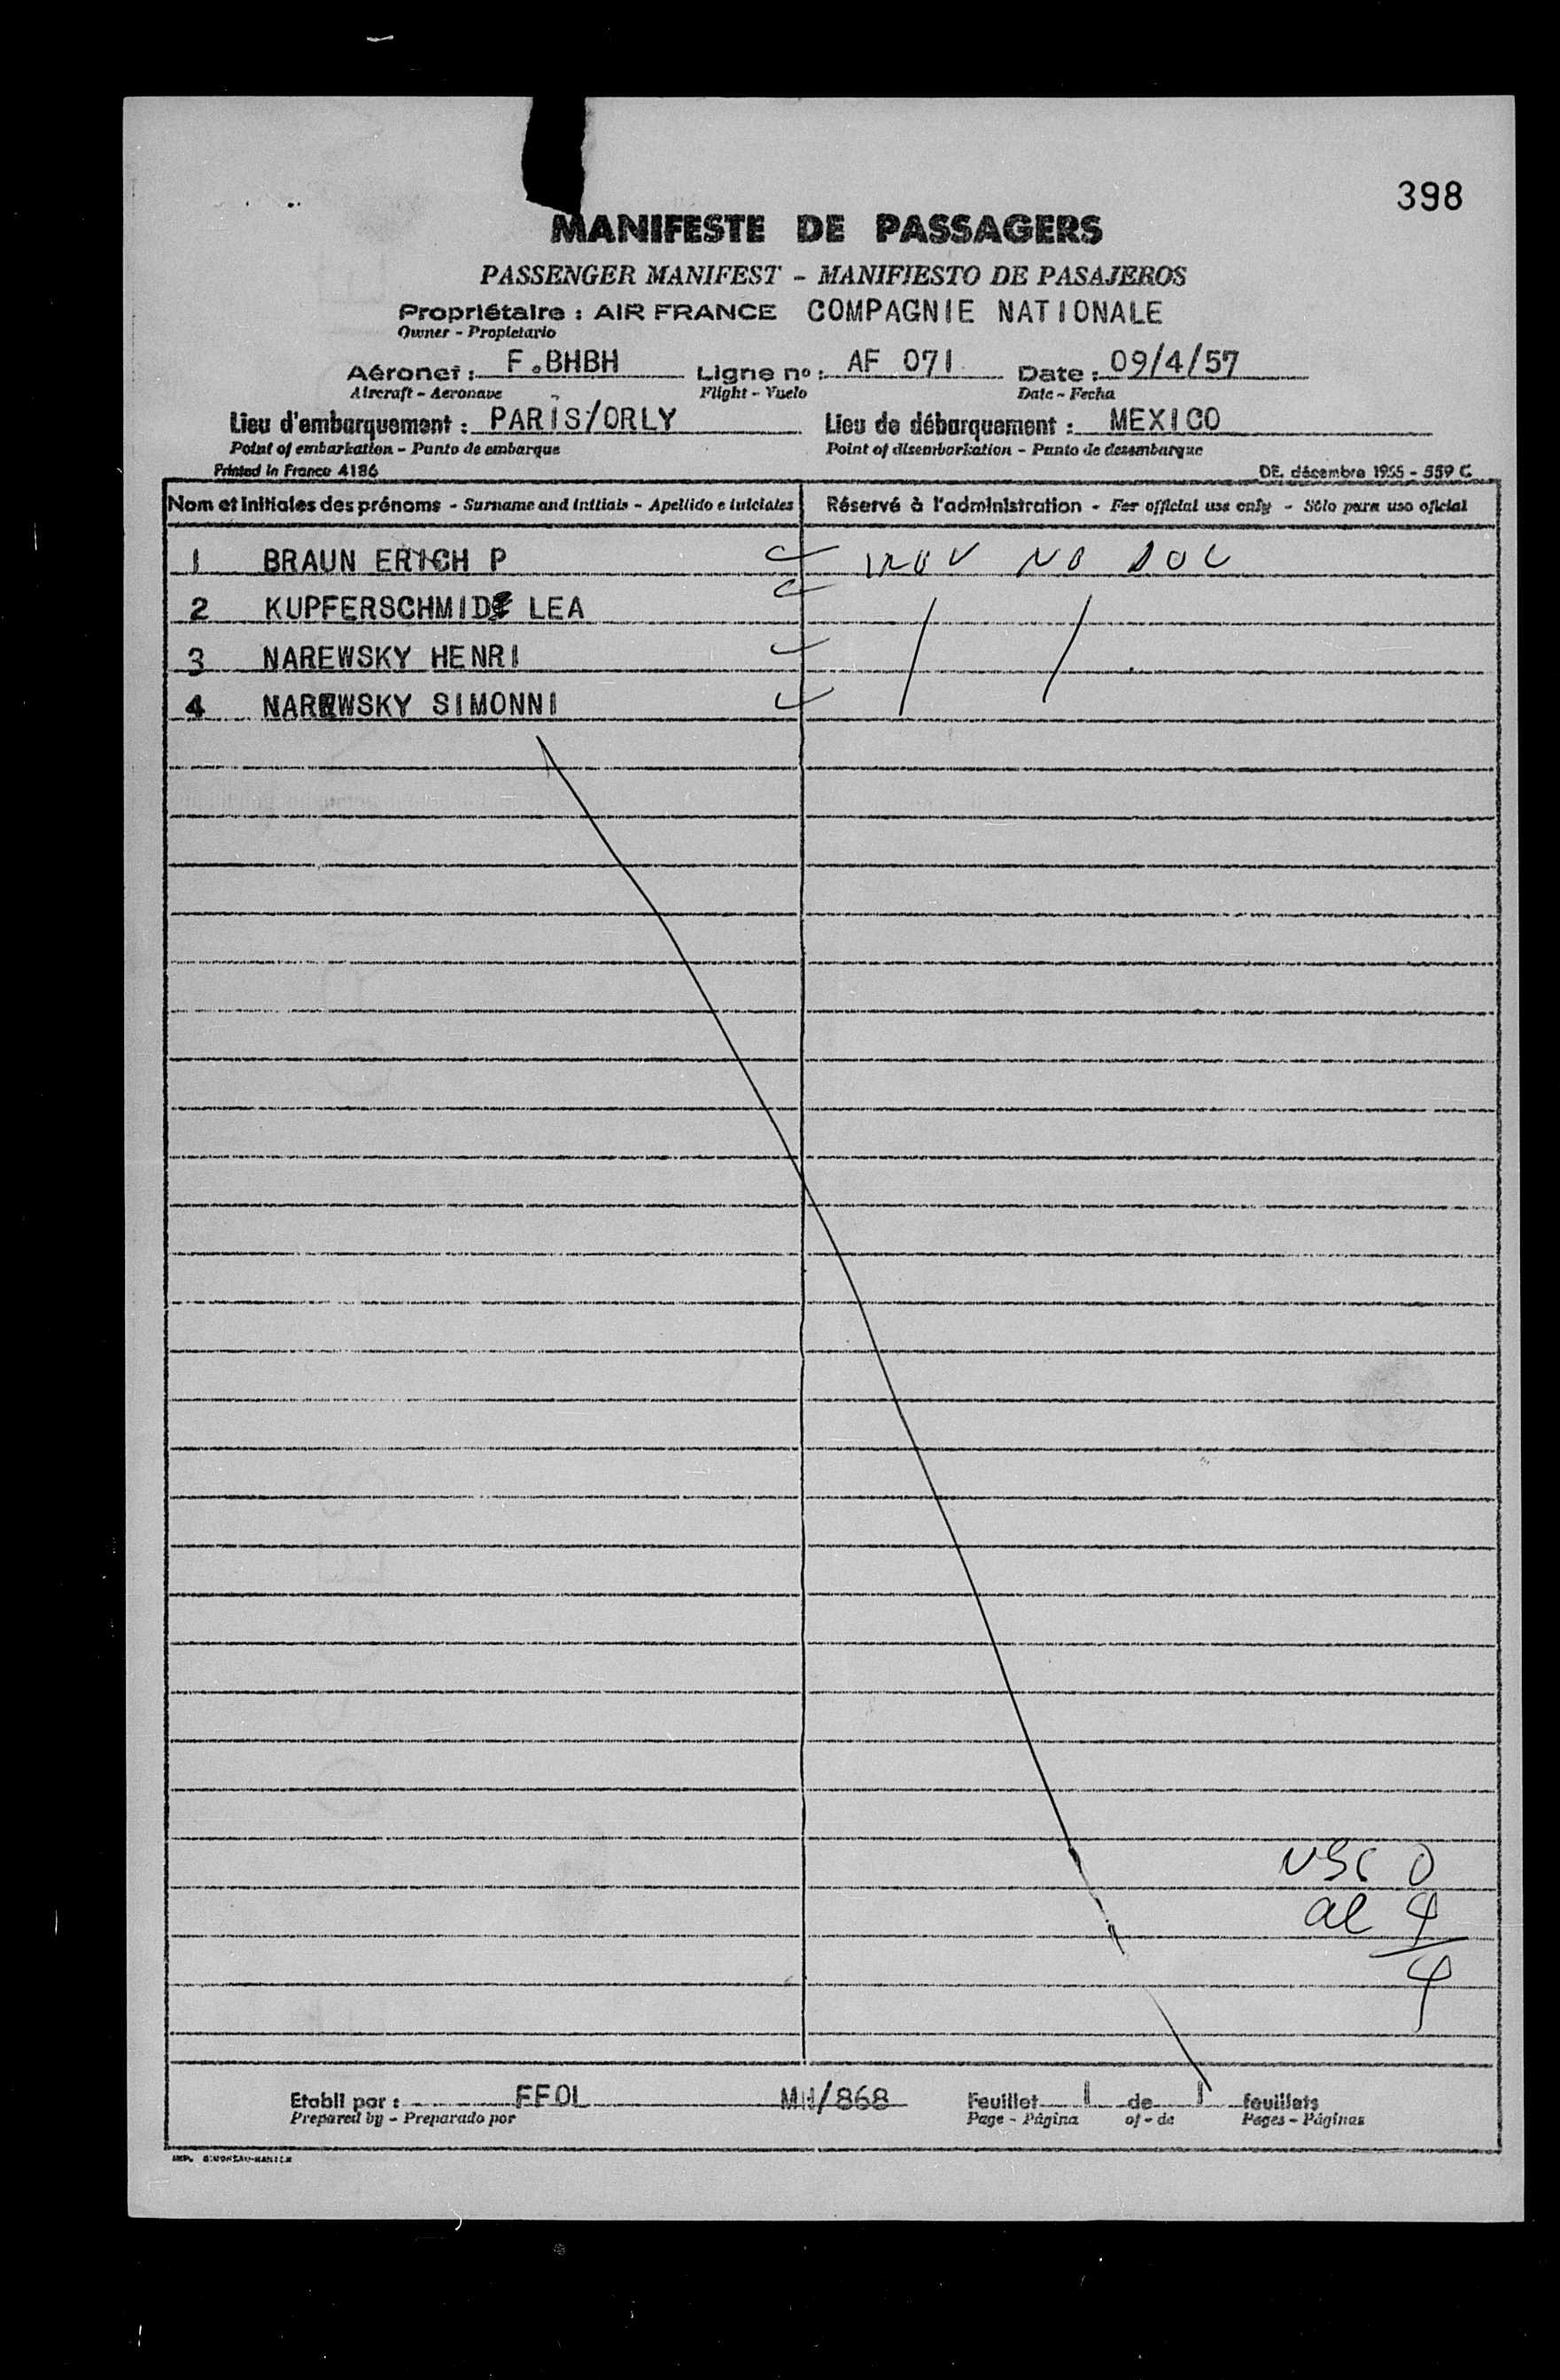 398
MANIFESTE DE PASSAGERS
PASSENGER MANIFEST - MANIFIESTO DE PASAJEROS
Propriétaire : AIR FRANCE COMPAGNIE NATIONALE
Owner - Propietario
Aéronef : F.BHBH Ligne no : AF 071 Date : 09/4/57
Aircraft - Aeronave Flight - Vuelo Date - Fecha
Lieu d'embarquement : PARIS/ORLY Lieu de débarquement : MEXICO
Point of embarkation - Punto de embarque Point of disembarkation - Punto de desembarque
Printed in France 4186 DE. décembre 1955 - 559 C
Nom et initiales des prénoms - Surname and initials - Apellido e iniciales Réservé à l'administration - For official use only - Sólo para uso oficial
1 BRAUN ERICH P NO DOC
2 KUPFERSCHMID LEA
3 NAREWSKY HENRI
4 NAREWSKY SIMONNI
USC 0
al 4
4
Etabli par : FFOL MH/868 Feuillet 1 de 1 feuillets
Prepared by - Preparado por Page - Página of - de Pages - Páginas